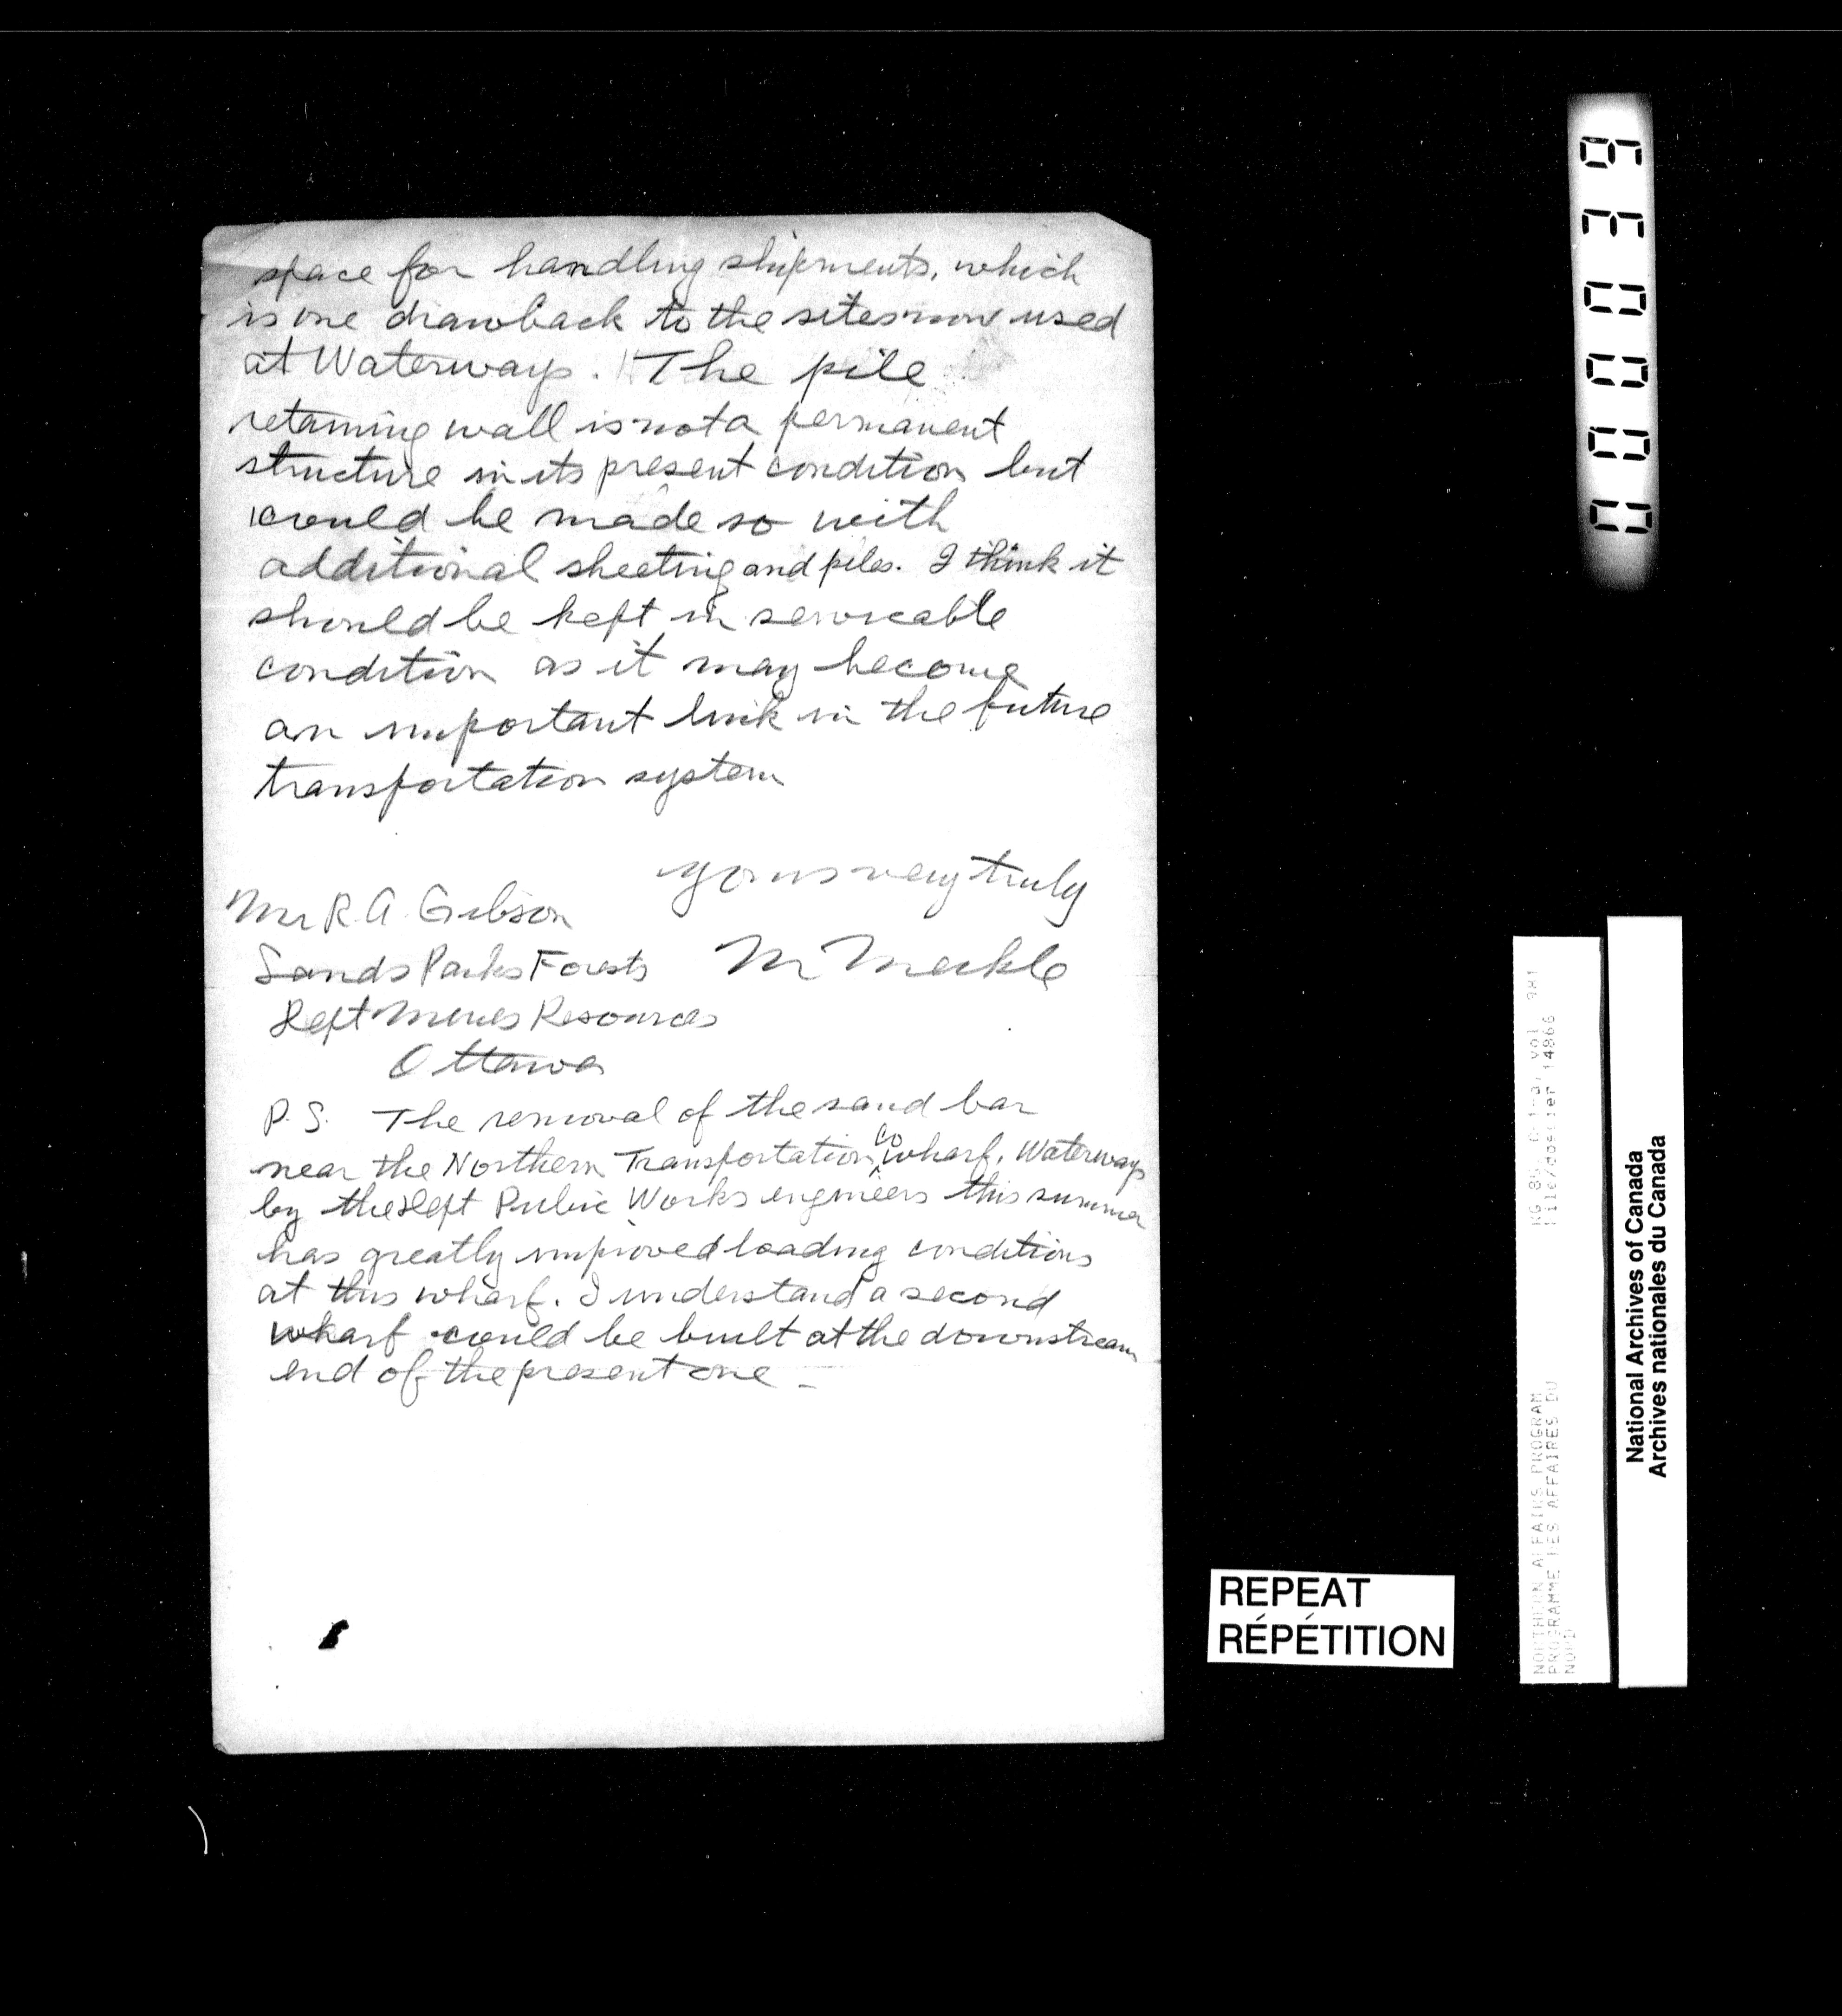 space for handling shipments, which
is one drawback to the sites now used
at Waterways. The pile
retaining wall is not a permanent
structure in its present condition but
could be made so with
additional sheeting and piles. I think it
should be kept in servicable
condition as it may become
an important link in the future
transportation system
yours very truly
Mr R. A. Gibson
Lands Parks Forests
M Meikle
Dept Mines Resources
Ottawa
P.S. The removal of the sand bar
near the Northern Transportation Co wharf, Waterways
by the Dept Public Works engineers this summer
has greatly improved loading conditions
at this wharf. I understand a second
wharf could be built at the downstream
end of the present one -
REPEAT
RÉPÉTITION
NORTHERN AFFAIRS PROGRAM
PROGRAMME DES AFFAIRES DU
NORD
RG 85, vol. 981
File/dossier 14866
National Archives of Canada
Archives nationales du Canada